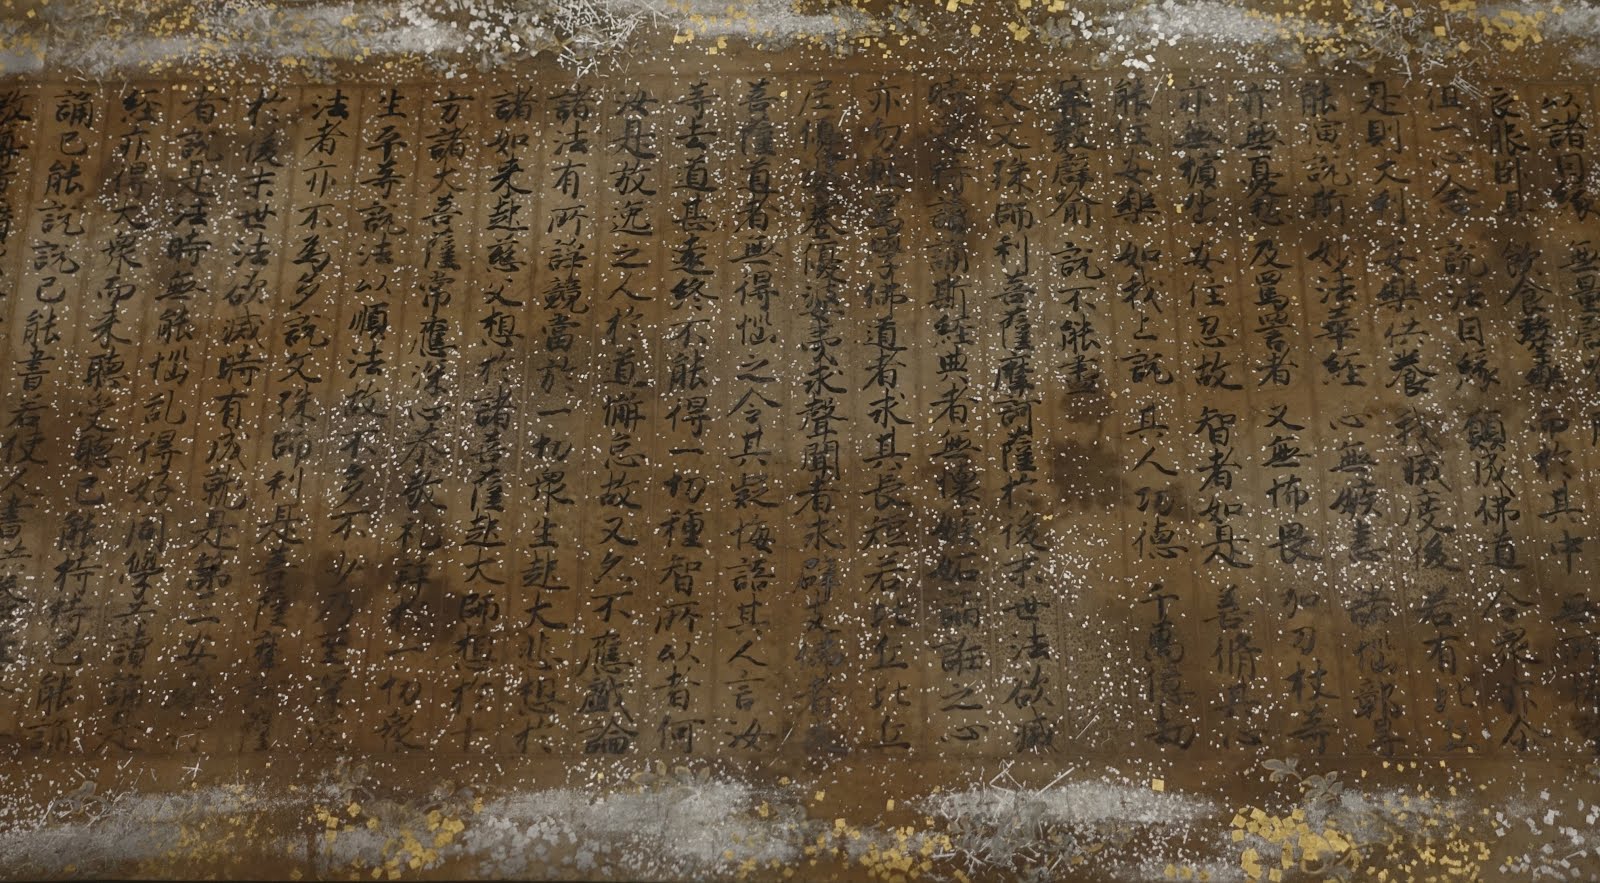 以諸因縁 無量
衣服臥具 飲食醫藥 而於其中 無所
但一心念 說法因縁 願成佛道 令衆亦尒
是則大利 安樂供養 我滅度後 若有比丘
能演說斯 妙法華經 心無嫉恚 諸惱鄣㝵
亦無憂愁 及罵詈者 又無怖畏 加刀杖等
亦無擯出 安住忍故 智者如是 善脩其心
能住安樂 如我上說 其人功德 千萬億劫
筭數譬喻 說不能盡
又文殊師利菩薩摩訶薩於後末世法欲滅
時受持讀誦斯經典者無懷嫉妬諂誑之心
亦勿輕罵學佛道者求其長短若比丘比丘
尼優婆塞優婆夷求聲聞者求辟支佛者求
菩薩道者無得惱之令其疑悔語其人言汝
等去道甚遠終不能得一切種智所以者何
汝是放逸之人於道懈怠故又亦不應戲論
諸法有所諍競當於一切衆生起大悲想於
諸如来起慈父想於諸菩薩起大師想於十
方諸大菩薩常應深心恭敬礼拜於一切衆
生平等說法以順法故不多不少乃至深愛
法者亦不為多說文殊師利是菩薩摩訶薩
於後末世法欲滅時有成就是第三安樂行
者說是法時無能惱乱得好同學共讀誦是
經亦得大衆而来聽受聽已能持持已能誦
誦已能說說已能書若使人書供養
敬尊重讃